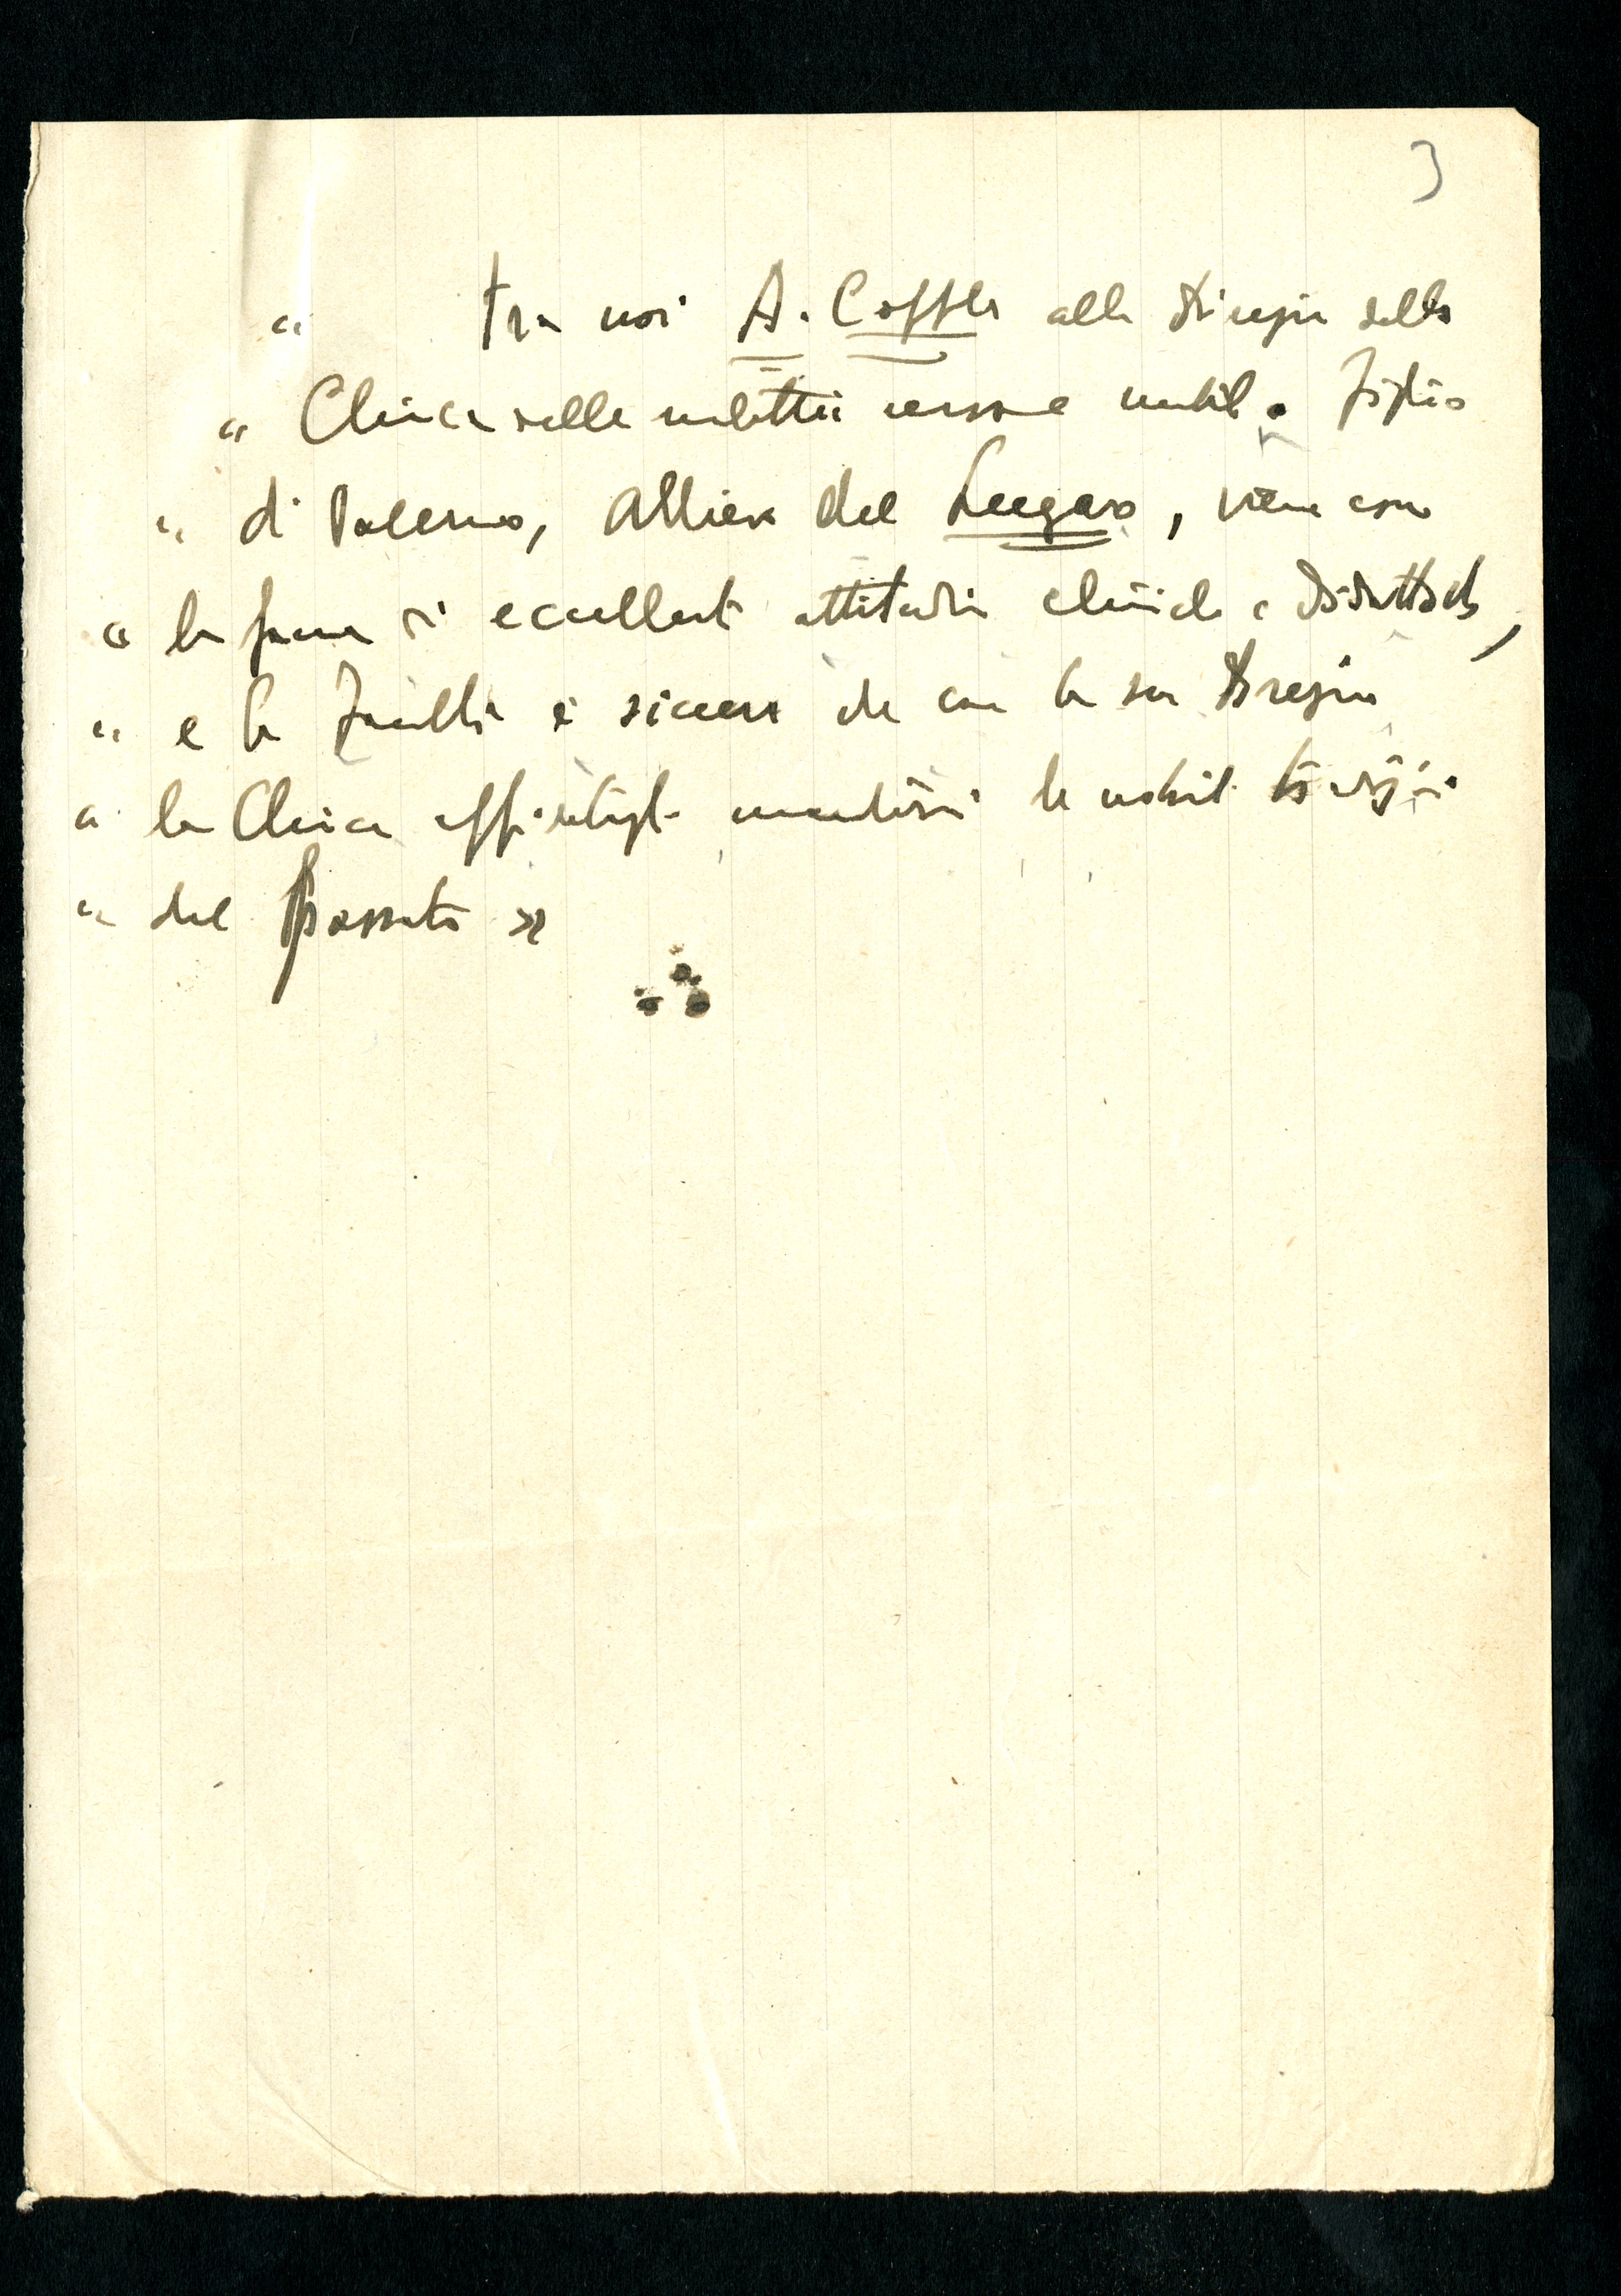 3
« tra noi A. Coppola alla direzione della
« Clinica delle malattie nervose e mentali. Figlio
« di Palermo, allievo del Lugaro, viene con
« la fama di eccellenti attitudini cliniche e didattiche,
« e la Facoltà è sicura che con la sua direzione
« la Clinica affidatagli manterrà le nobili tradizioni
« del passato »